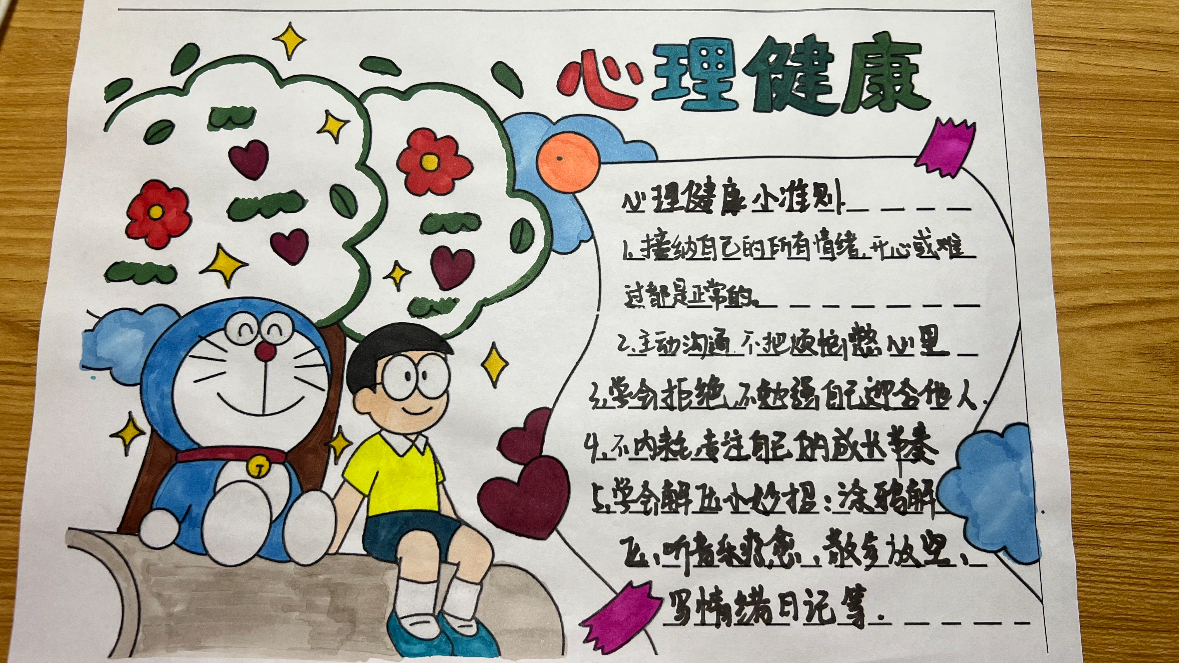 心理健康
心理健康小准则
1.接纳自己的所有情绪.开心或难
过都是正常的。
2.主动沟通.不把烦恼憋心里
3.学会拒绝.不勉强自己迎合他人.
4.不内耗.专注自己的成长节奏
5.学会解压小妙招:涂鸦解
压、听音乐疗愈、散步放空、
写情绪日记等.